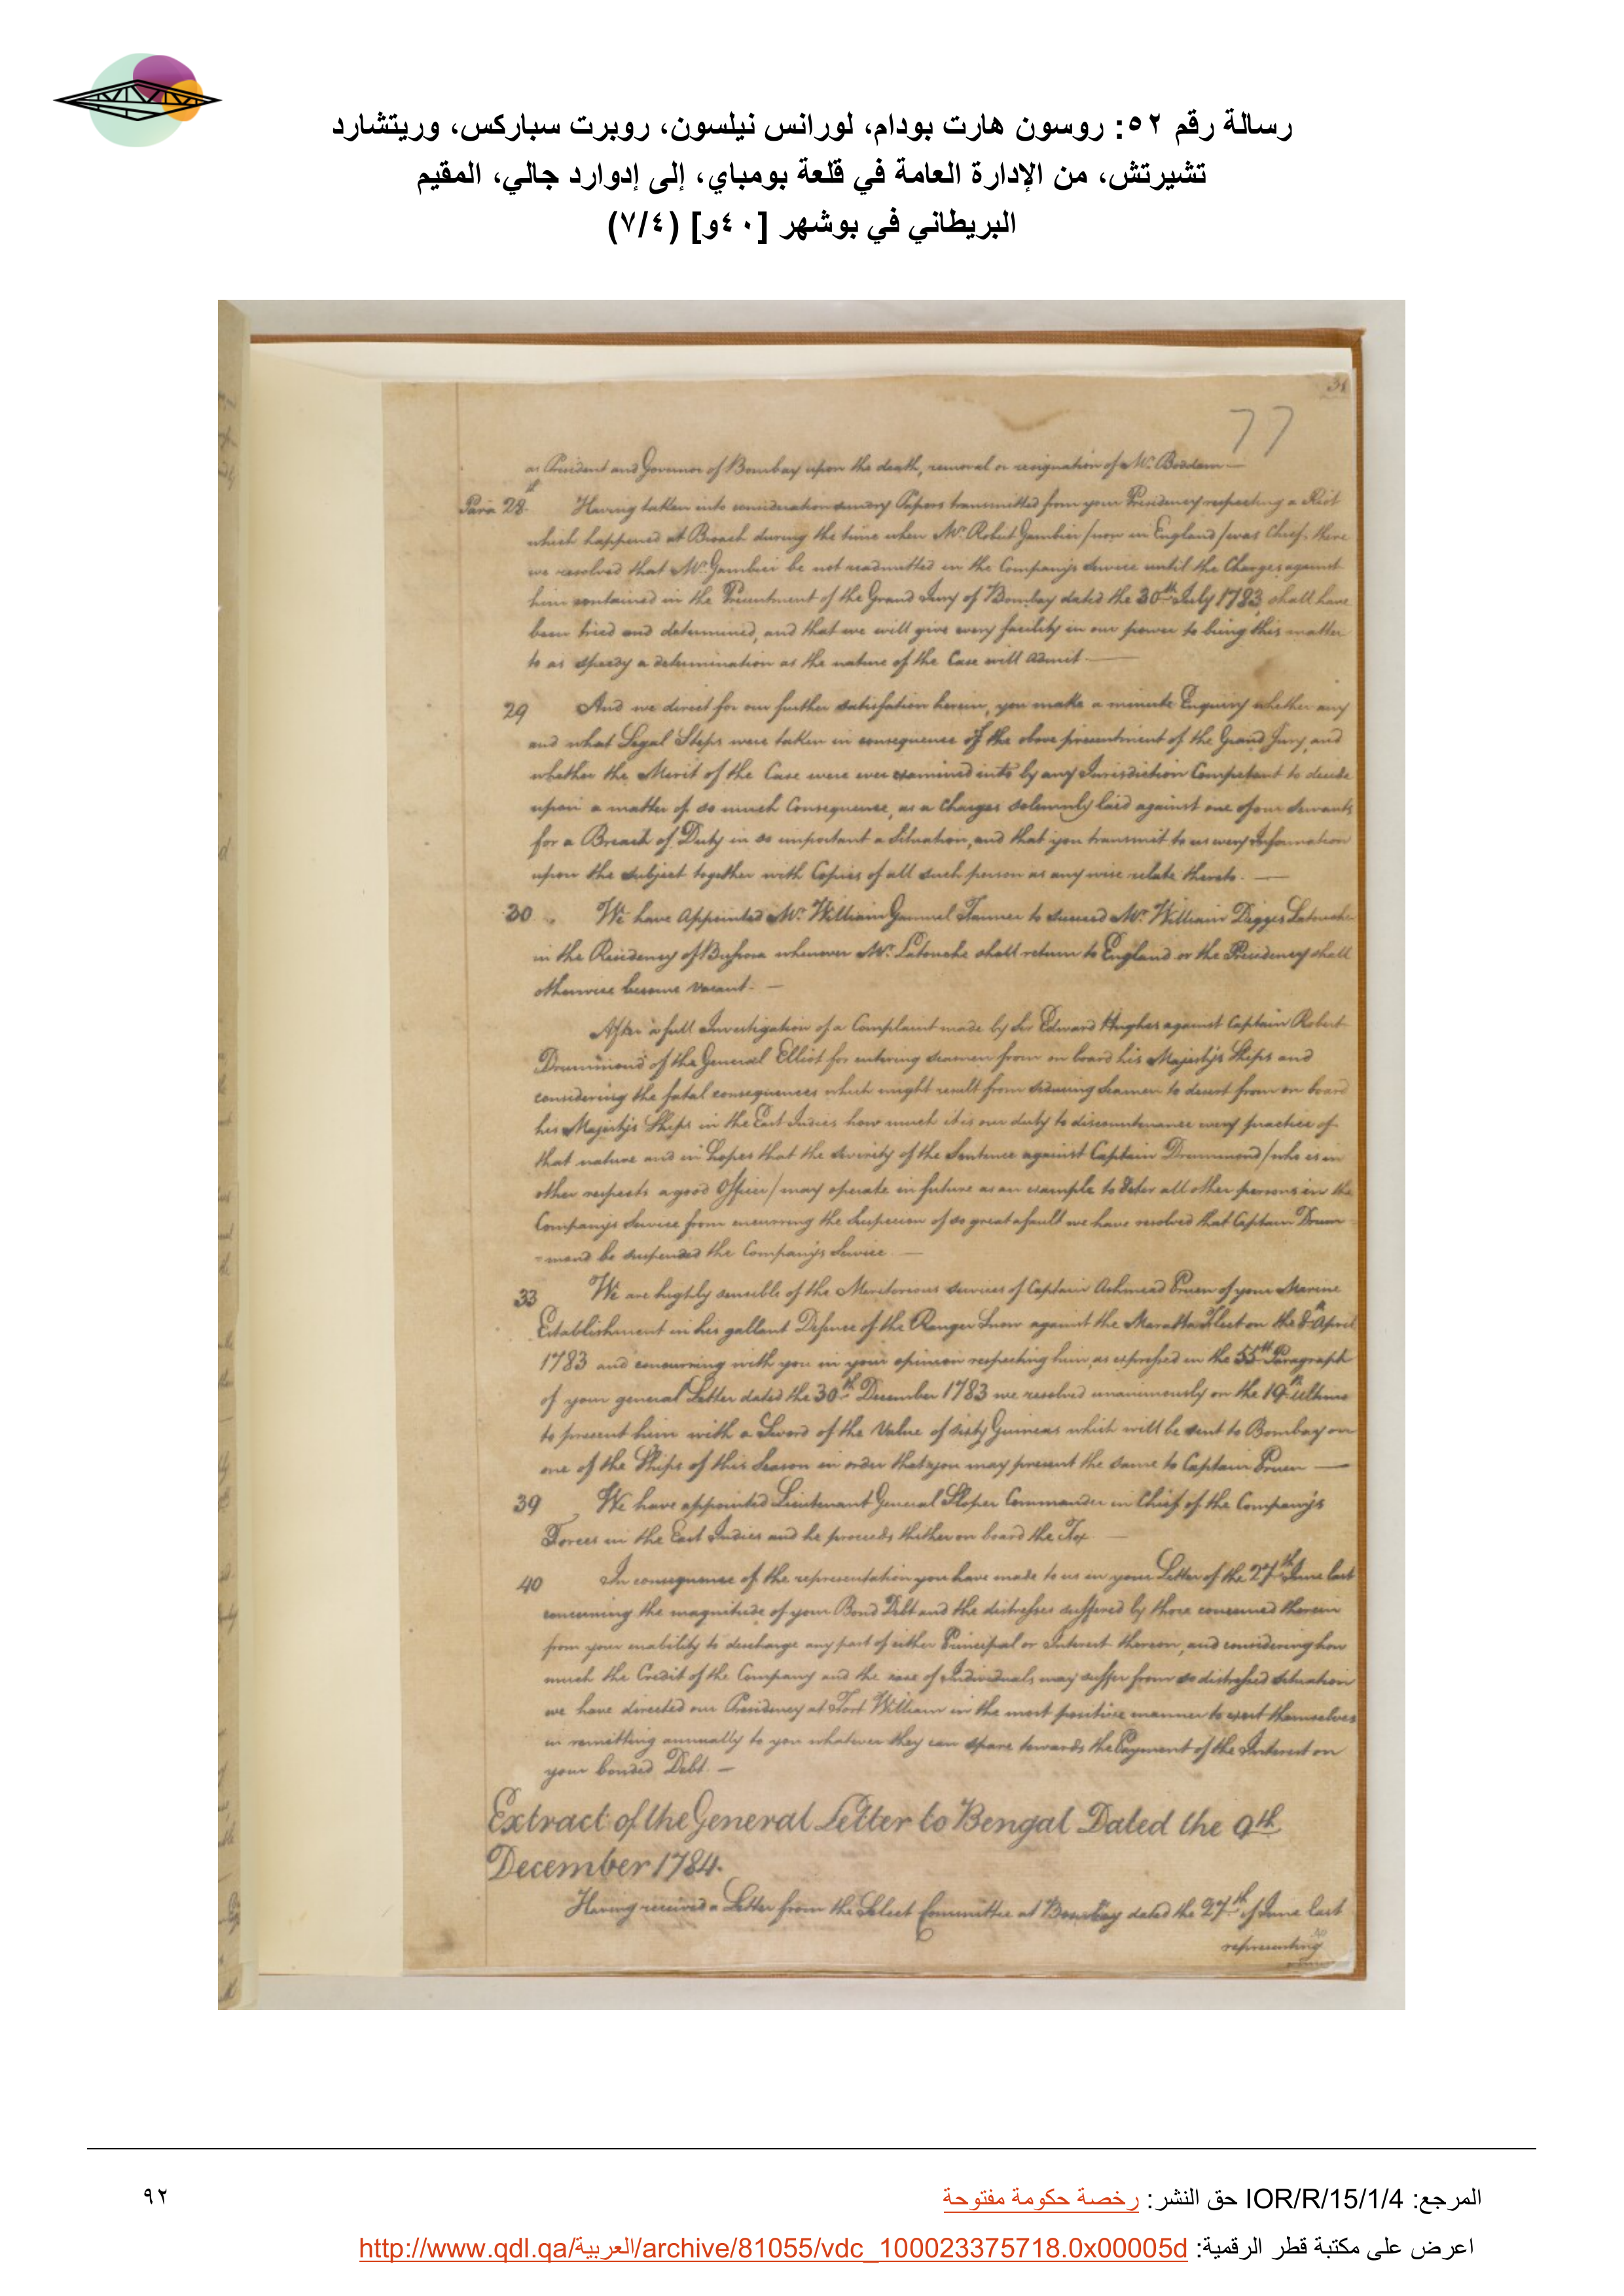 رسالة رقم ٥٢: روسون هارت بودام، لورانس نيلسون، روبرت سباركس، وريتشارد
تشيرتش، من الإدارة العامة في قلعة بومباي، إلى إدوارد جالي، المقيم
البريطاني في بوشهر [٤٠و] (٧/٤)
77
as President and Governor of Bombay upon the death, removal or resignation of Mr. Boddam —
Para 28. Having taken into consideration sundry Papers transmitted from your Presidency respecting a Riot
which happened at Broach during the time when Mr. Robert Gambier /now in England/ was Chief there
we resolved that Mr. Gambier be not readmitted in the Company's Service until the Charges against
him contained in the Presentment of the Grand Jury of Bombay dated the 30th July 1783 shall have
been tried and determined, and that we will give every facility in our power to bring this matter
to as speedy a determination as the nature of the Case will admit —
29 And we direct for our further satisfation herein, you make a minute Enquiry whether any
and what Legal Steps were taken in consequence of the above presentment of the Grand Jury, and
whether the Merit of the Case were ever examined into by any Jurisdiction Competant to decide
upon a matter of so much Consequence, as a Charges solemnly laid against one of our Servants
for a Breach of Duty in so important a Situation, and that you transmit to us every Information
upon the subject together with Copies of all such person as any wise relate thereto. —
30 We have Appointed Mr. William Tanner to succeed Mr. William Digges Latouche
in the Residency of Bussora whenever Mr. Latouche shall return to England or the Presidency shall
otherwise become vacant. —
After a full Investigation of a Complaint made by Sir Edward Hughes against Captain Robert
Drummond of the General Elliot for entering seamen from on board his Majesty's Ships and
considering the fatal consequences which might result from seducing Seamen to desert from on board
his Majesty's Ships in the East Indies how much it is our duty to discountenance every practice of
that nature and in hopes that the severity of the Sentence against Captain Drummond /who is in
other respects a good Officer/ may operate in future as an example to deter all other persons in the
Company's Service from incurring the Suspicion of so great a fault we have resolved that Captain Drum
-mond be suspended the Company's Service —
33 We are highly sensible of the Meritorious services of Captain Ashmead Pruen of your Marine
Establishment in his gallant Defence of the Ranger Snow against the Maratta Fleet on the 8th April
1783 and concurring with you in your opinion respecting him, as expressed in the 55th Paragraph
of your general Letter dated the 30th December 1783 we resolved unanimously on the 19th Ultimo
to present him with a Sword of the Value of sixty Guineas which will be sent to Bombay on
one of the Ships of this Season in order that you may present the same to Captain Pruen —
39 We have appointed Lieutenant General Sloper Commander in Chief of the Company's
Forces in the East Indies and he proceeds thither on board the Fox —
40 In consequence of the representation you have made to us in your Letter of the 27th June last
concerning the magnitude of your Bond Debt and the distresses suffered by those concerned therein
from your inability to discharge any part of either Principal or Interest thereon, and considering how
much the Credit of the Company and the case of Individuals may suffer from so distressed situation
we have directed our Presidency at Fort William in the most positive manner to exert themselves
in remitting annually to you whatever they can spare towards the Payment of the Interest on
your bonded Debt. —
Extract of the General Letter to Bengal Dated the 9th
December 1784.
Having received a Letter from the Select Committee at Bombay dated the 27th of June last
representing
المرجع: IOR/R/15/1/4 حق النشر: رخصة حكومة مفتوحة
٩٢
اعرض على مكتبة قطر الرقمية: http://www.qdl.qa/العربية/archive/81055/vdc_100023375718.0x00005d